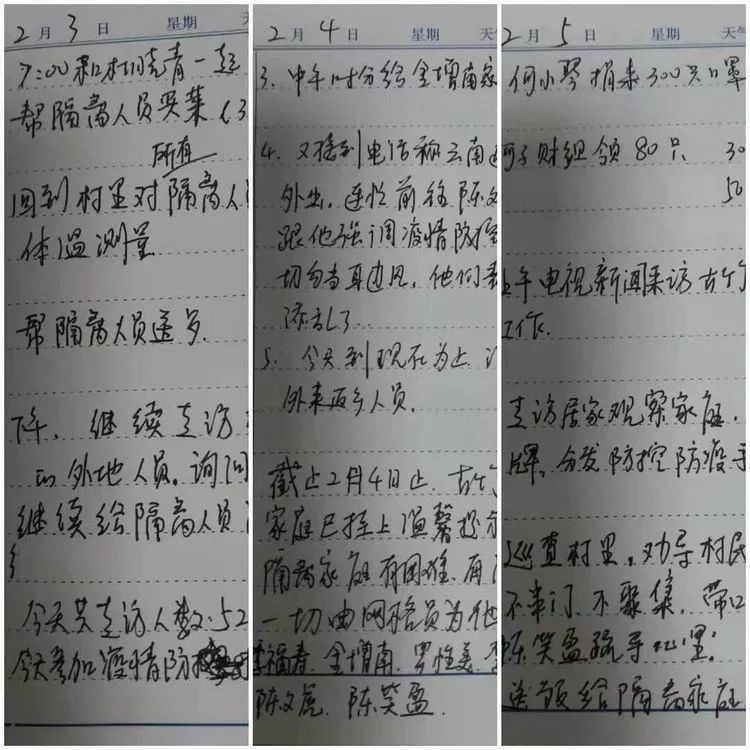 2月 3日 星期 天
7:00和村
青一起
帮隔离人员买菜 (3
所有
回到村里对隔离人
体温测量
帮隔离人员送多.
下午, 继续走访
的外地人员.询问
继续给隔离人员
今天共走访人数:52
今天参加疫情防控
2月 4日 星期 天气
3. 中午时分给金增南家
4. 又接到电话称云南
外出, 连忙前往陈文
跟他强调疫情防控
切勿当耳边风, 他们
添乱了..
5. 今天到现在为止
外来返乡人员.
截止2月4日止. 古竹
家庭已挂上温馨提示
隔离家庭有困难.有
一切由网格员为他
李福春.金增南.罗
陈文虎. 陈笑盈.
2月 5日 星期 天气
何小琴捐来300只口罩
财组领80只 30
50
上午电视新闻采访古竹
工作.
走访居家观察家庭.
牌, 分发防控防疫手
巡查村里,劝导村民
不串门.不聚集.带口
陈笑盈疏导心里;
送饭给隔离家庭